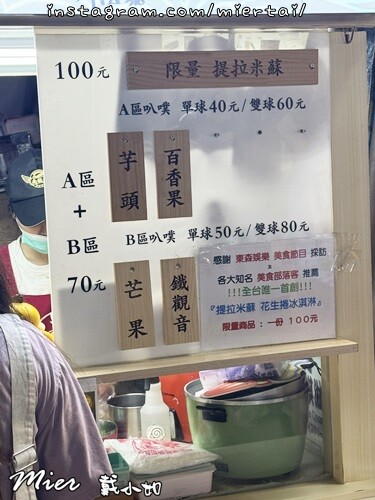 instagram.com/miertai/
100元
限量 提拉米蘇
A區叭噗 單球40元/雙球60元
芋頭
百香果
A區
+
B區
70元
B區叭噗 單球50元/雙球80元
芒果
鐵觀音
感謝 東森娛樂 美食節目 採訪
&
各大知名 美食部落客 推薦
!!!全台唯一首創!!!
『提拉米蘇 花生捲冰淇淋』
限量商品：一份 100元
Mier 戴小如